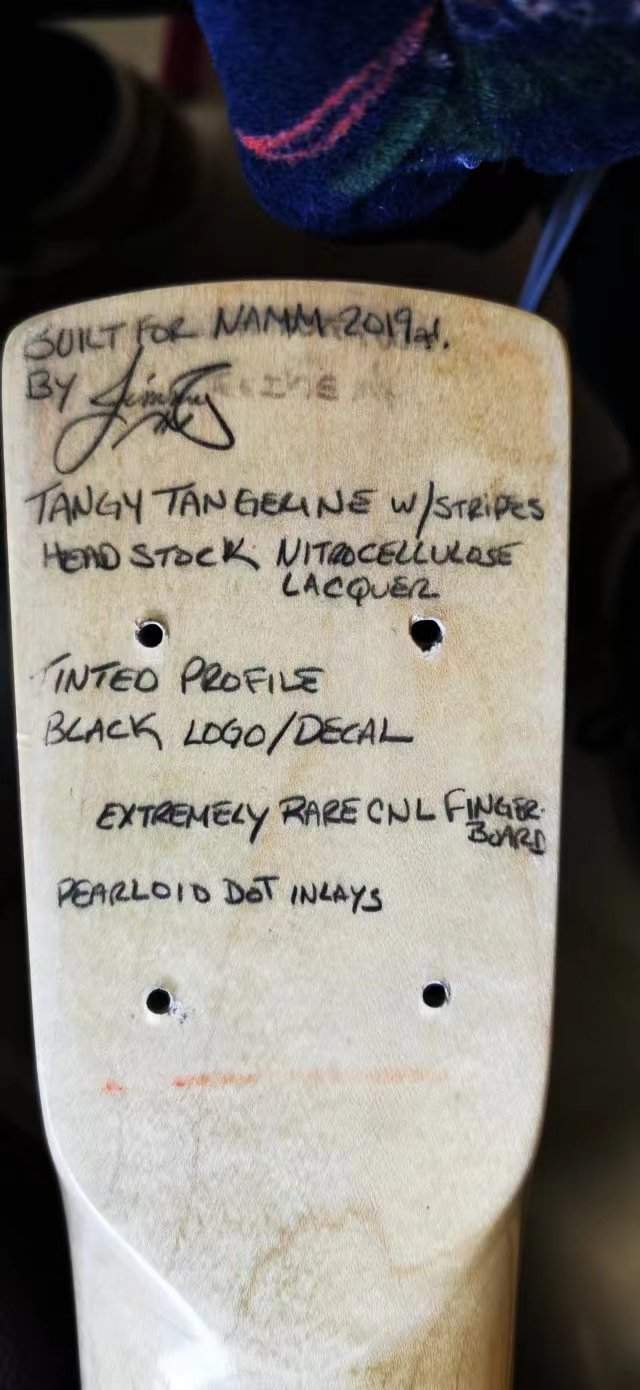 BUILT FOR NAMM 2019
BY
TANGY TANGERINE W/STRIPES
HEADSTOCK NITROCELLULOSE
LACQUER
TINTED PROFILE
BLACK LOGO/DECAL
EXTREMELY RARE CNL FINGER-
BOARD
PEARLOID DOT INLAYS